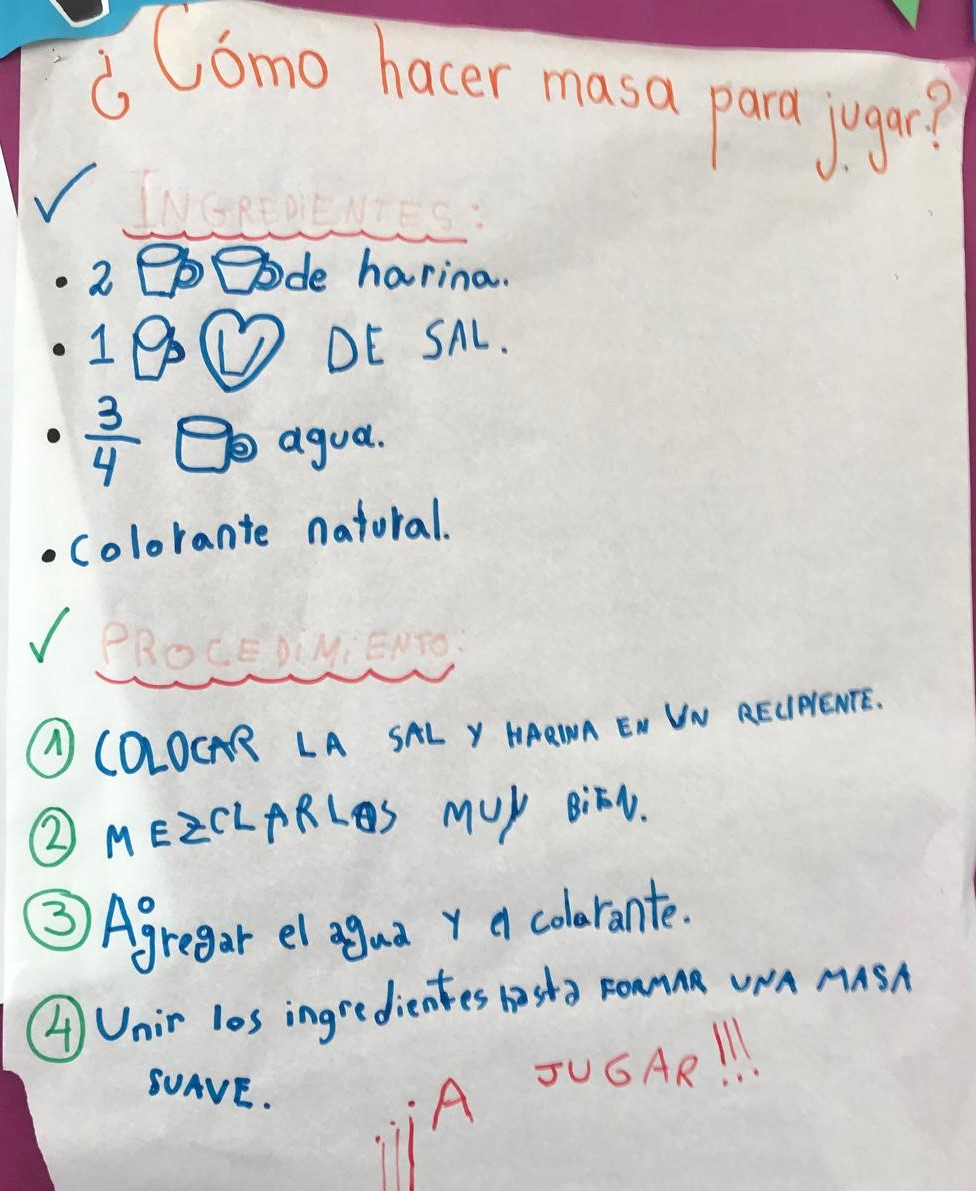 ¿Cómo hacer masa para jugar?
✓ INGREDIENTES:
• 2 de harina.
• 1 DE SAL.
• 3/4 agua.
• Colorante natural.
✓ PROCEDIMIENTO:
1 COLOCAR LA SAL Y HARINA EN UN RECIPIENTE.
2 MEZCLARLOS MUY BIEN.
3 Agregar el agua Y el colarante.
4 Unir los ingredientes hasta FORMAR UNA MASA
SUAVE.
¡¡¡A JUGAR!!!